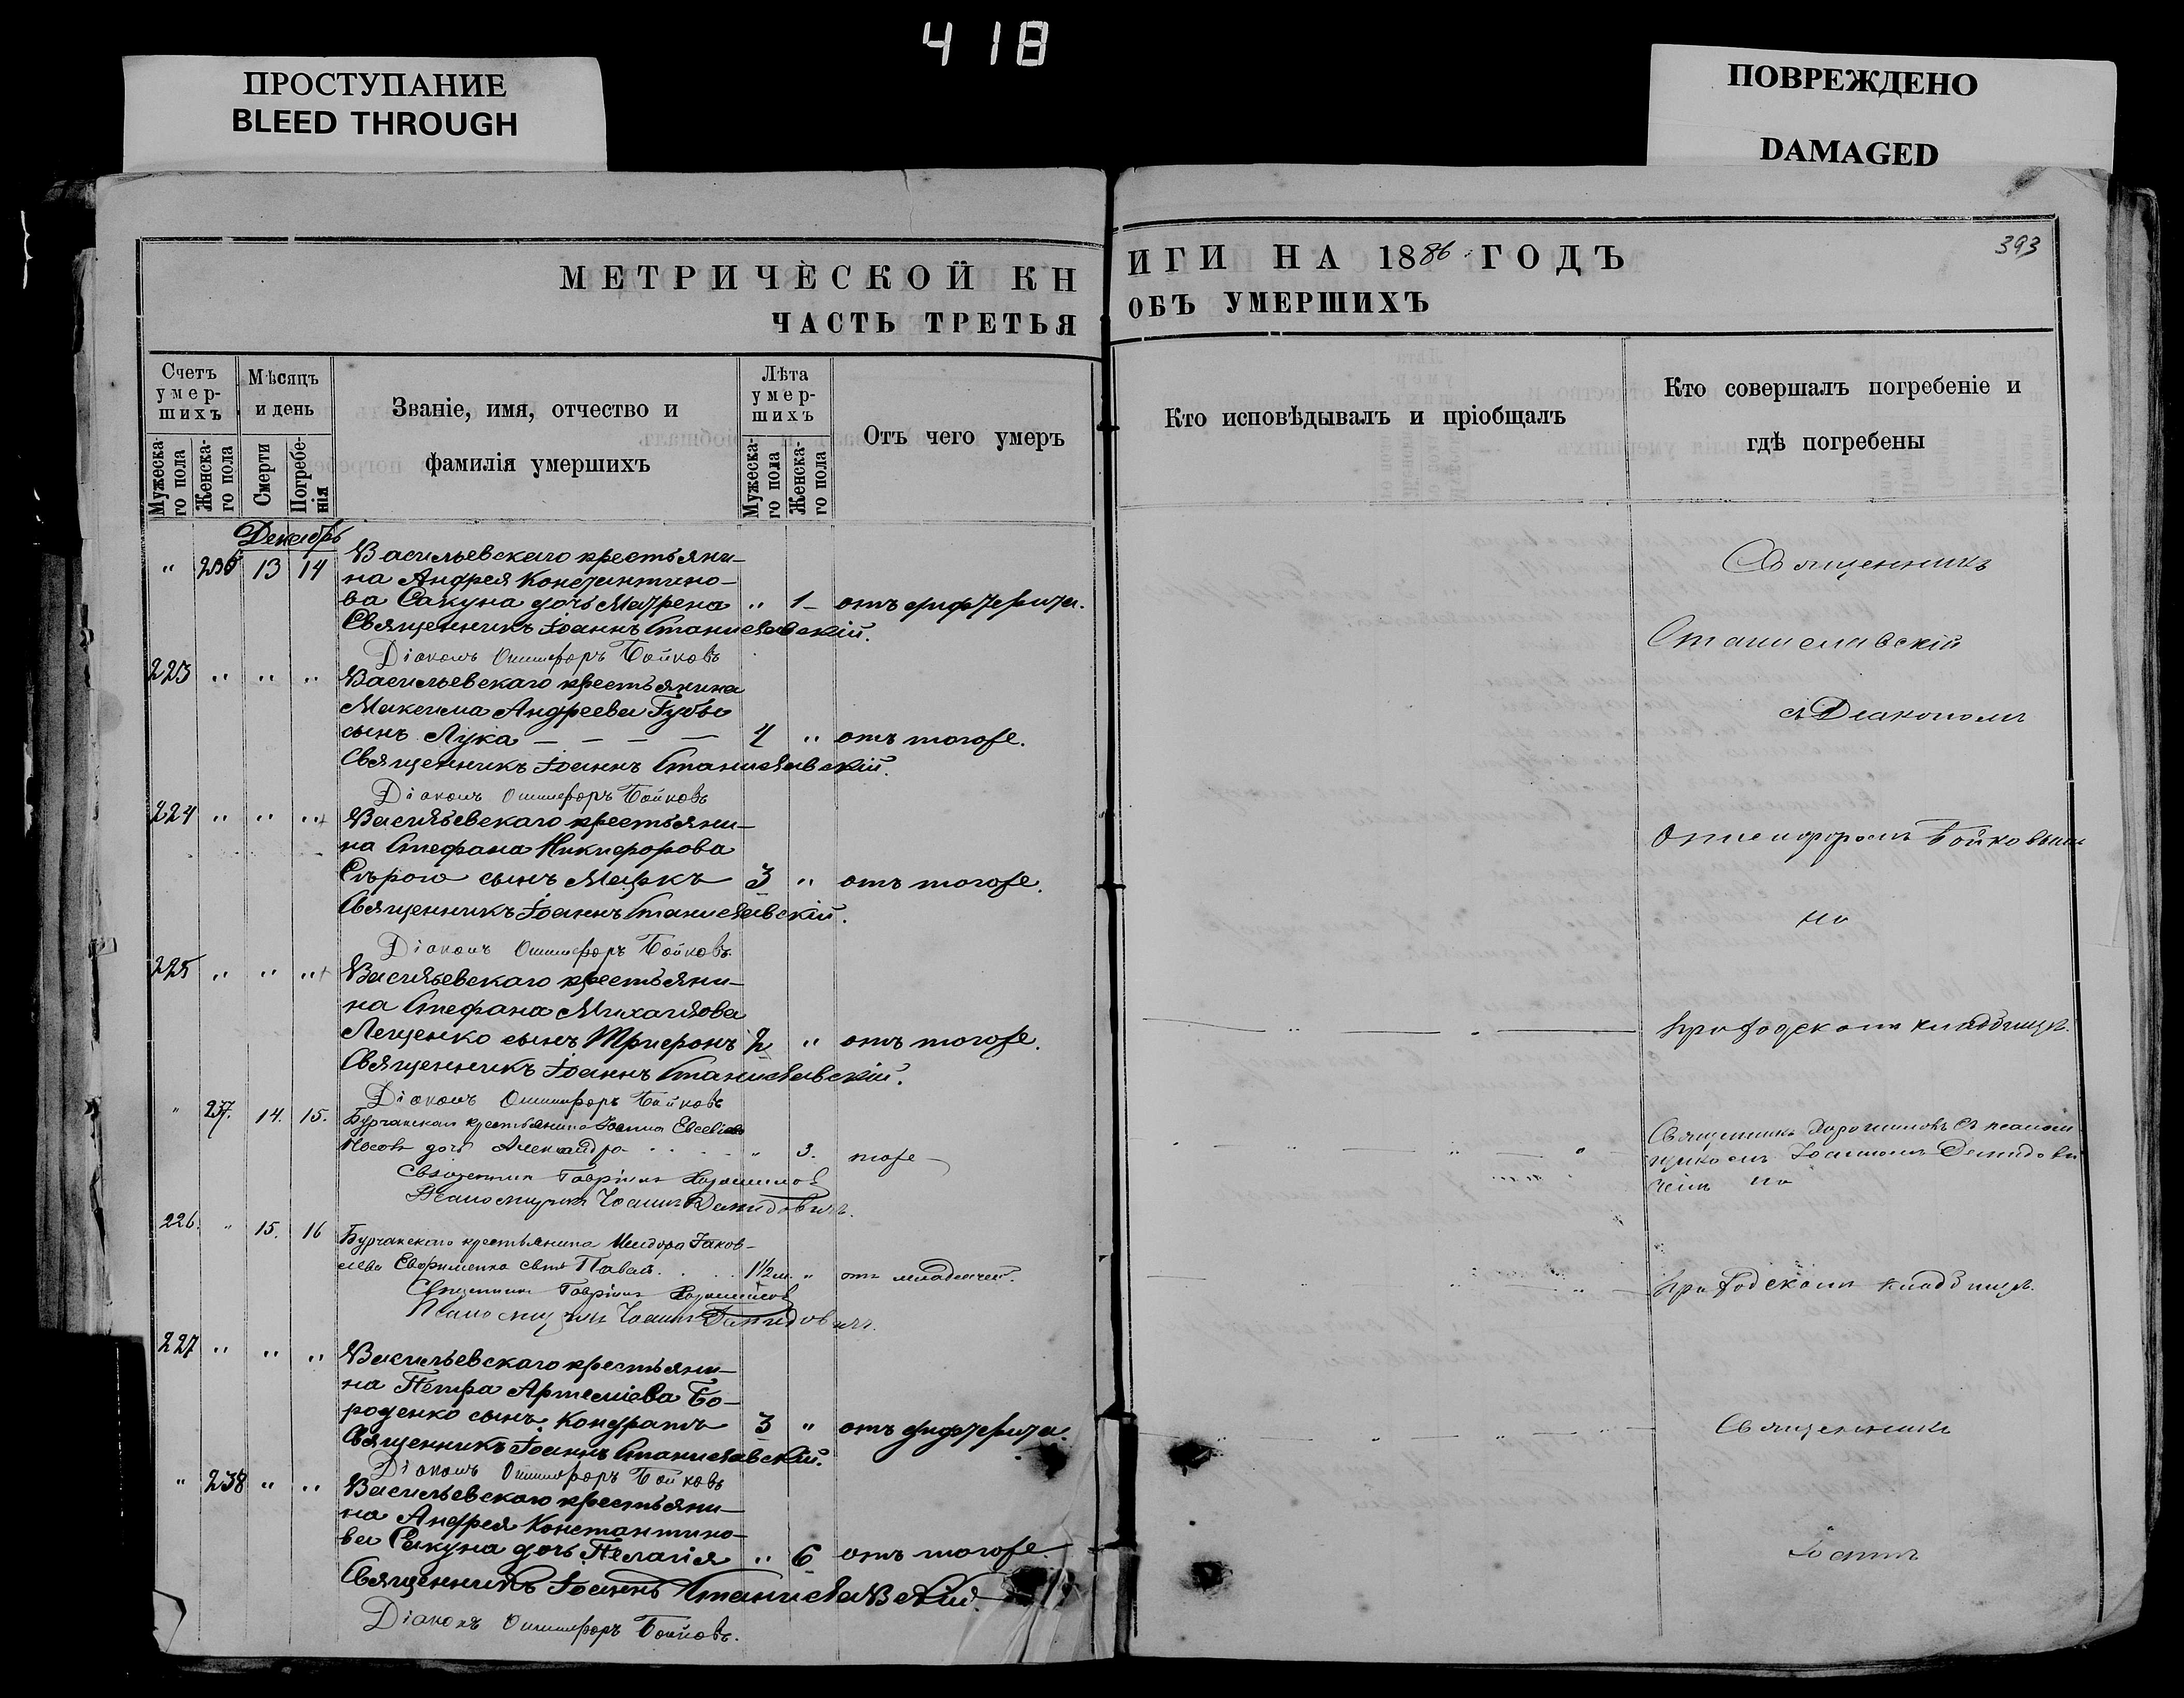 418
ПРОСТУПАНИЕ
BLEED THROUGH
ПОВРЕЖДЕНО
DAMAGED
МЕТРИЧЕСКОЙ КН
ЧАСТЬ ТРЕТЬЯ
Счетъ умер-шихъ
Мужеска-го пола
Женска-го пола
Мѣсяцъ и день
Смерти
Погребе-нія
Званіе, имя, отчество и
фамилія умершихъ
Лѣта умер-шихъ
Мужеска-го пола
Женска-го пола
Отъ чего умеръ
Декабрь
" 236 13 14 Васильевскаго крестьяни-
на Андрея Константино-
ва Сакуна дочь Матрена " 1 отъ дифтерита.
Священникъ Іоаннъ Станиславскій.
Діаконъ Онисифоръ Бойковъ
223 " " " Васильевскаго крестьянина
Максима Андреева Губы
сынъ Лука — — — — 4 " отъ тогоже.
Священникъ Іоаннъ Станиславскій.
Діаконъ Онисифоръ Бойковъ
224 " " " Васильевскаго крестьяни-
на Стефана Никифорова
Сѣрого сынъ Маркъ 3 " отъ тогоже.
Священникъ Іоаннъ Станиславскій.
Діаконъ Онисифоръ Бойковъ
225 " " " Васильевскаго крестьяни-
на Стефана Михаилова
Лещенко сынъ Трифонъ 2 " отъ тогоже.
Священникъ Іоаннъ Станиславскій.
Діаконъ Онисифоръ Бойковъ
" 237. 14. 15. крестьянина Іоанна Евсевіева
Носова дочь Александра " 3. тоже
Священникъ Гавріилъ
Псаломщикъ Іоаннъ Демидовичъ.
226. " 15. 16 крестьянина Исидора Іаков-
лева Ефименка сынъ Павелъ 1½ м. " отъ младенчес.
Священникъ Гавріилъ
Псаломщикъ Іоаннъ Демидовичъ.
227 " " " Васильевскаго крестьяни-
на Петра Артеміева Бо-
роденко сынъ Кондратъ 3 " отъ дифтерита.
Священникъ Іоаннъ Станиславскій.
Діаконъ Онисифоръ Бойковъ
" 238 " " Васильевскаго крестьяни-
на Андрея Константино-
ва Сакуна дочь Пелагія " 6 отъ тогоже.
Священникъ Іоаннъ Станиславскій.
Діаконъ Онисифоръ Бойковъ.
ИГИ НА 1886 ГОДЪ
393
ОБЪ УМЕРШИХЪ
Кто исповѣдывалъ и пріобщалъ
Кто совершалъ погребеніе и
гдѣ погребены
Священникъ
Станиславскій
съ Діакономъ
Онисифоромъ Бойковымъ
на
приходскомъ кладбищѣ.
Священникъ съ псалом
щикомъ Іоанномъ Демидови
чемъ на
приходскомъ кладбищѣ.
Священникъ
Іоаннъ